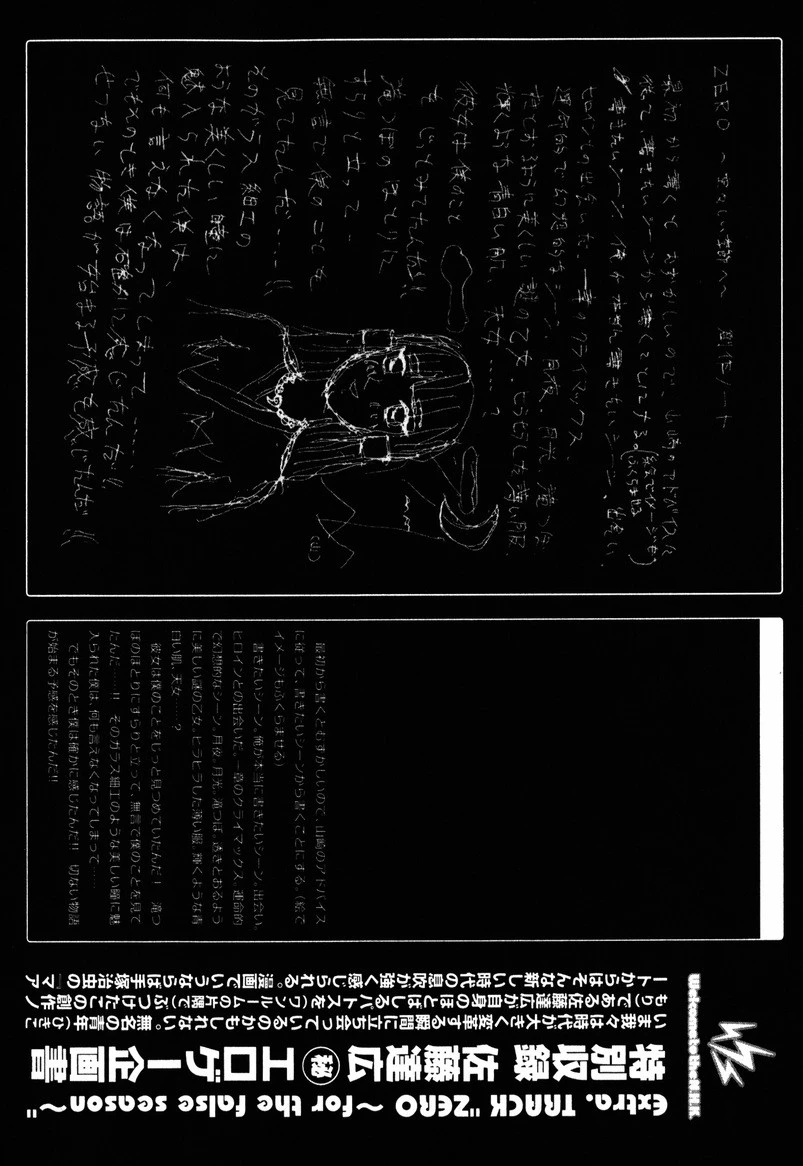 extra. TRACK "ZERO ～for the false season～"
特別収録 佐藤達広㊙エロゲー企画書
いま我々は時代が大きく変革する瞬間に立ち会っているのかもしれない。無名の青年(ひきこ
もり)である佐藤達広が自身のほとばしるパトスを(ワンルームの片隅で)ぶつけたこの創作ノ
ートからはそんな新しい時代の息吹が強く感じられる。漫画でいうならば手塚治虫の『マア
Welcome to the N.H.K.
ZERO 創作ノート
最初から書くとむずかしいので、山崎のアドバイスに
従って、書きたいシーンから書くことにする。
(絵でイメージも
ふくらませる)
書きたいシーン。俺が本当に書きたいシーン、出会い、
ヒロインとの出会いだ。一章のクライマックス
運命的で幻想的なシーン、月夜、月光、滝つぼ
すきとおるように美しい謎の乙女、ヒラヒラした薄い服
輝くような青白い肌、天女……?
彼女は僕のこと
をじっとみてたんだ!!
滝つぼのほとりに
すらりと立って…
無言で僕のことを
見てたんだ……!!
そのガラス細工の
ような美くしい瞳に
魅入られた僕は、
何も言えなくなってしまって……
でもそのとき僕は確かに感じたんだ!!
せつない物語が始まる予感を感じたんだ!!
最初から書くとむずかしいので、山崎のアドバイス
に従って、書きたいシーンから書くことにする。(絵で
イメージもふくらませる)
書きたいシーン。俺が本当に書きたいシーン。出会い。
ヒロインとの出会いだ。一章のクライマックス。運命的
で幻想的なシーン。月夜。月光。滝つぼ。透きとおるよう
に美しい謎の乙女。ヒラヒラした薄い服。輝くような青
白い肌。天女……?
彼女は僕のことをじっと見つめていたんだ! 滝つ
ぼのほとりにすらりと立って、無言で僕のことを見て
たんだ……!! そのガラス細工のような美しい瞳に魅
入られた僕は、何も言えなくなってしまって……
でもそのとき僕は確かに感じたんだ!! 切ない物語
が始まる予感を感じたんだ!!